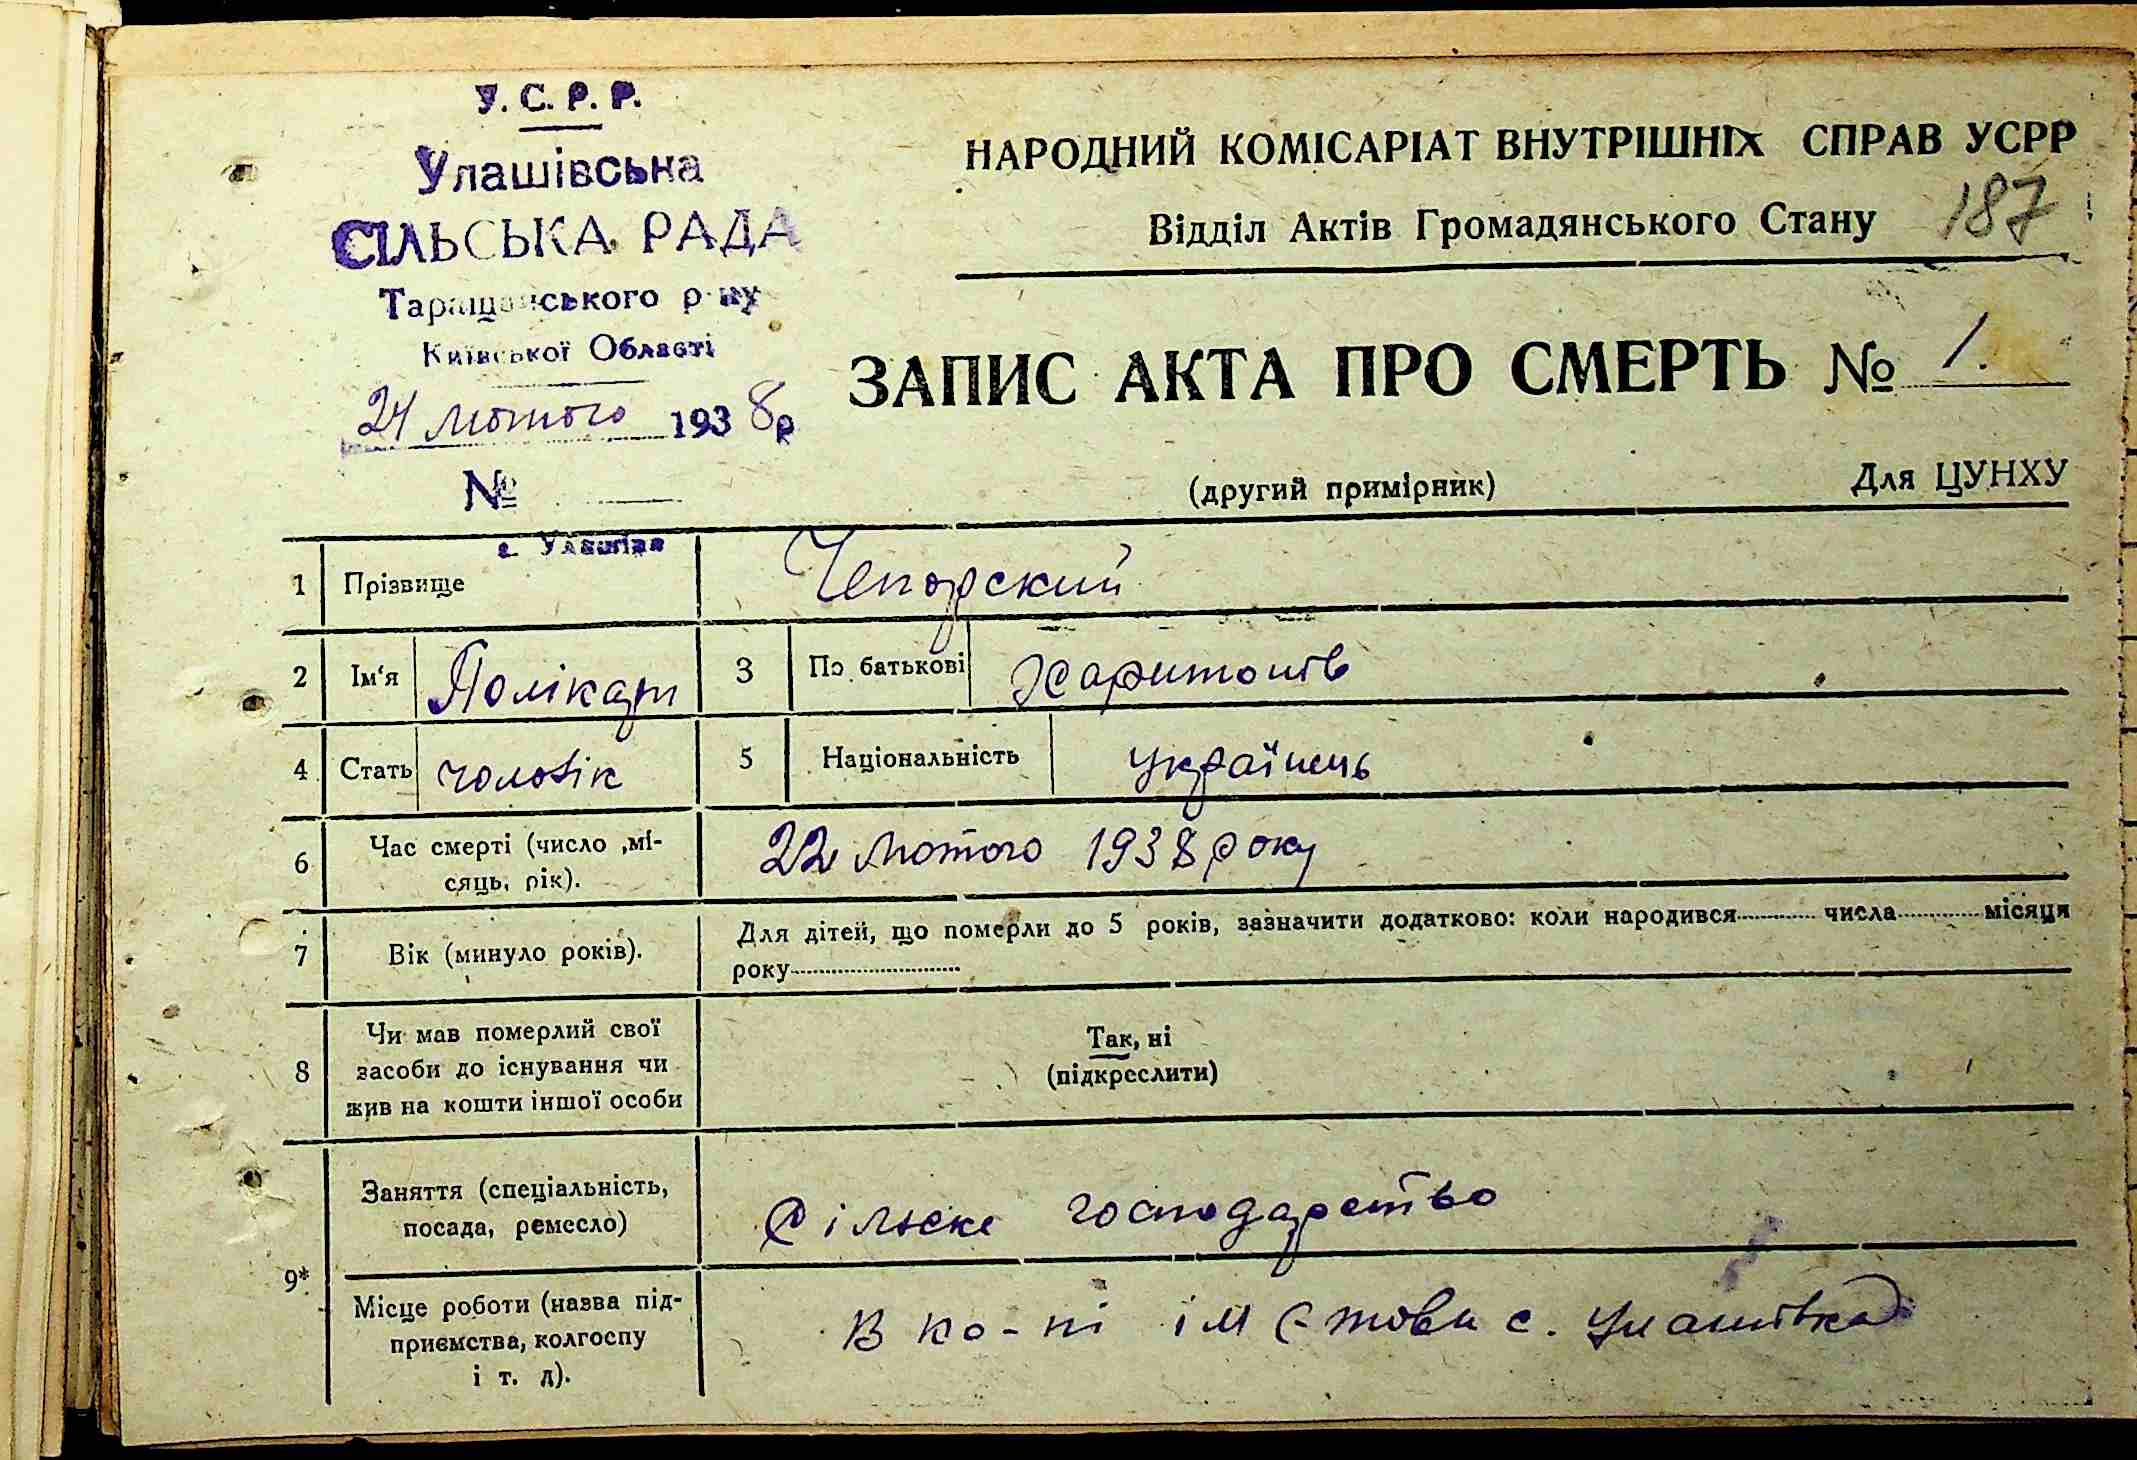 У. С. Р. Р.
Улашівська
СІЛЬСЬКА РАДА
Таращанського р-ну
Київської Області
24 лютого 1938р
№
с. Улашівка
НАРОДНИЙ КОМІСАРІАТ ВНУТРІШНІХ СПРАВ УСРР
Відділ Актів Громадянського Стану 187
ЗАПИС АКТА ПРО СМЕРТЬ № 1.
(другий примірник) Для ЦУНХУ
1 Прізвище Чепорский
2 Ім'я Полікарп 3 По батькові Харитонів
4 Стать чоловік 5 Національність українець
6 Час смерті (число ,мі-
сяць, рік). 22 лютого 1938 року
7 Вік (минуло років). Для дітей, що померли до 5 років, зазначити додатково: коли народився числа місяця
року
8 Чи мав померлий свої
засоби до існування чи
жив на кошти іншої особи
Так, ні
(підкреслити)
9* Заняття (спеціальність,
посада, ремесло) Сільске господарство
Місце роботи (назва під-
приємства, колгоспу
і т. д).
В ко-пі ім с. Улашівка